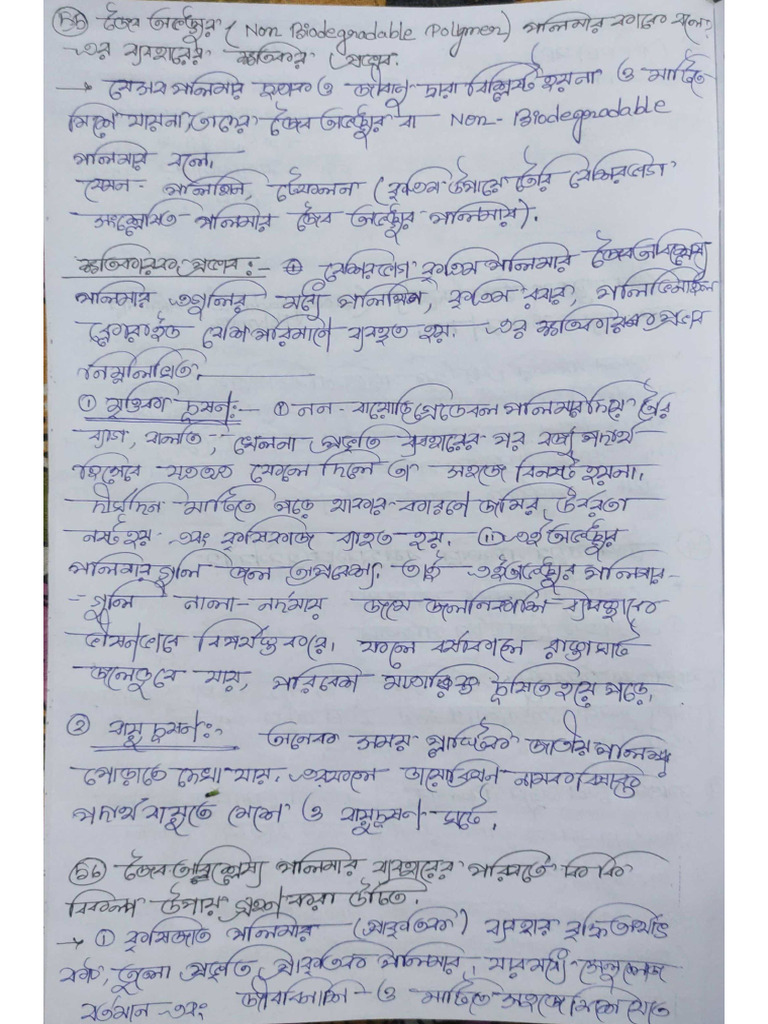 ৫৫ জৈব অভঙ্গুর (Non Biodegradable Polymer) পলিমার কাকে বলে?
এর ব্যবহারের ক্ষতিকর প্রভাব.
→ যেসব পলিমার ছত্রাক ও জীবাণু দ্বারা বিশ্লিষ্ট হয়না ও মাটিতে
মিশে যায়না তাদের জৈব অভঙ্গুর বা Non-Biodegradable
পলিমার বলে।
যেমন- পলিথিন, টেফলন (কৃত্রিম উপায়ে তৈরি বেশিরভাগ
সংশ্লেষিত পলিমার জৈব অভঙ্গুর পলিমার)।
ক্ষতিকারক প্রভাব:- বেশিরভাগ কৃত্রিম পলিমার জৈব অবিশ্লেষ্য
পলিমার এগুলির মধ্যে পলিথিন, কৃত্রিম রবার, পলিভিনাইল
ক্লোরাইড বেশি পরিমাণে ব্যবহৃত হয়. এর ক্ষতিকারক প্রভাব
নিম্নলিখিত.
① মৃত্তিকা দূষণ:- ① নন-বায়োডিগ্রেডেবল পলিমার দিয়ে তৈরি
ব্যাগ, বালতি, খেলনা প্রভৃতি ব্যবহারের পর বর্জ্য পদার্থ
হিসেবে যত্রতত্র ফেলে দিলে তা সহজে বিনষ্ট হয়না।
দীর্ঘদিন মাটিতে পড়ে থাকার কারণে জমির উর্বরতা
নষ্ট হয় এবং কৃষিকাজে ব্যাহত হয়. (ii) এই অভঙ্গুর
পলিমার গুলি জলে অদ্রাব্য. তাই এই অভঙ্গুর পলিমার-
-গুলি নালা-নর্দমায় জমে জলনিকাশি ব্যবস্থাকে
ভীষণভাবে বিপর্যস্ত করে। ফলে বর্ষাকালে রাস্তাঘাট
জলে ডুবে যায়, পরিবেশ মারাত্মক দূষিত হয়ে পড়ে,
② বায়ু দূষণ:- অনেক সময় প্লাস্টিক জাতীয় পলিমার
পোড়াতে দেখা যায়. এরফলে ডায়োক্সিন নামক বিষাক্ত
পদার্থ বায়ুতে মেশে ও বায়ুদূষণ ঘটে.
৫৬ জৈব অবিশ্লেষ্য পলিমার ব্যবহারের পরিবর্তে কি কি
বিকল্প উপায় গ্রহণ করা উচিত.
→ ① কৃষিজাত পলিমার (প্রাকৃতিক) ব্যবহার বৃদ্ধি অর্থাৎ
তুলো প্রভৃতি প্রাকৃতিক পলিমার, যারমধ্যে সেলুলোজ
বর্তমান এবং ও মাটিতে সহজে মিশে যেতে